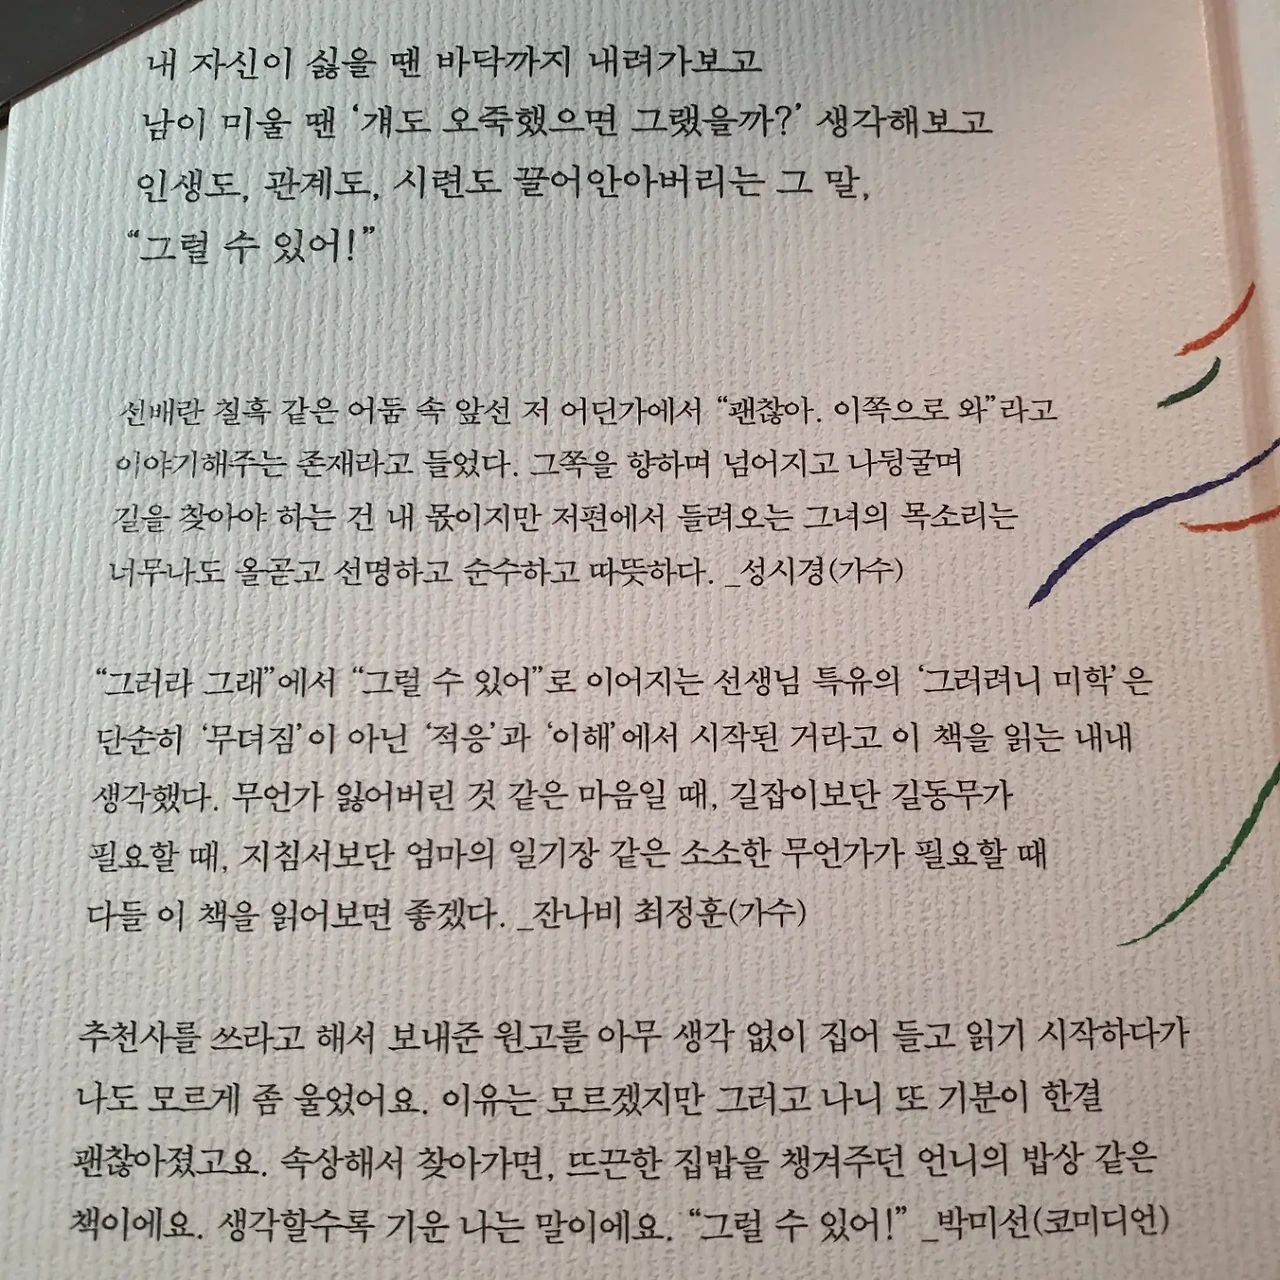 내 자신이 싫을 땐 바닥까지 내려가보고
남이 미울 땐 ‘걔도 오죽했으면 그랬을까?’ 생각해보고
인생도, 관계도, 시련도 끌어안아버리는 그 말,
“그럴 수 있어!”
선배란 칠흑 같은 어둠 속 앞선 저 어딘가에서 “괜찮아. 이쪽으로 와”라고
이야기해주는 존재라고 들었다. 그쪽을 향하며 넘어지고 나뒹굴며
길을 찾아야 하는 건 내 몫이지만 저편에서 들려오는 그녀의 목소리는
너무나도 올곧고 선명하고 순수하고 따뜻하다. _성시경(가수)
“그러라 그래”에서 “그럴 수 있어”로 이어지는 선생님 특유의 ‘그러려니 미학’은
단순히 ‘무뎌짐’이 아닌 ‘적응’과 ‘이해’에서 시작된 거라고 이 책을 읽는 내내
생각했다. 무언가 잃어버린 것 같은 마음일 때, 길잡이보단 길동무가
필요할 때, 지침서보단 엄마의 일기장 같은 소소한 무언가가 필요할 때
다들 이 책을 읽어보면 좋겠다. _잔나비 최정훈(가수)
추천사를 쓰라고 해서 보내준 원고를 아무 생각 없이 집어 들고 읽기 시작하다가
나도 모르게 좀 울었어요. 이유는 모르겠지만 그러고 나니 또 기분이 한결
괜찮아졌고요. 속상해서 찾아가면, 뜨끈한 집밥을 챙겨주던 언니의 밥상 같은
책이에요. 생각할수록 기운 나는 말이에요. “그럴 수 있어!” _박미선(코미디언)